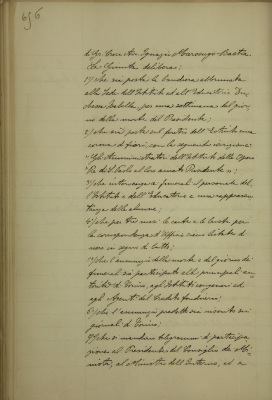 656
di S. E. Cav. Avv. Ignazio Marsengo Bastia
La Giunta delibera:
1°/ che sia posta la bandiera abbrunata
alla Sede dell'Istituto ed all'Educatorio Du-
chessa Isabella, per una settimana dal gior-
no della morte del Presidente;
2°/ che sia posta sul feretro dell'Estinto una
corona di fiori con la seguente iscrizione:
"Gli Amministratori dell'Istituto delle Opere
Pie di S. Paolo al loro amato Presidente";
3°/ che intervenga ai funerali il personale del-
l'Istituto e dell'Educatorio e una rappresen-
tanza delle alunne;
4°/ che per tre mesi le carte e le buste per
la corrispondenza d'Ufficio siano listate di
nero in segno di lutto;
5°/ che l'annunzio della morte e del giorno dei
funerali sia partecipato alle principali au-
torità di Torino, agli Istituti congeneri ed
agli Agenti del Credito fondiario;
6°/ che l'annunzio predetto sia inserito nei
giornali di Torino;
7°/ che si mandino telegrammi di partecipa-
zione al Presidente del Consiglio dei Mi-
nistri, al Ministro dell'Interno, ed a